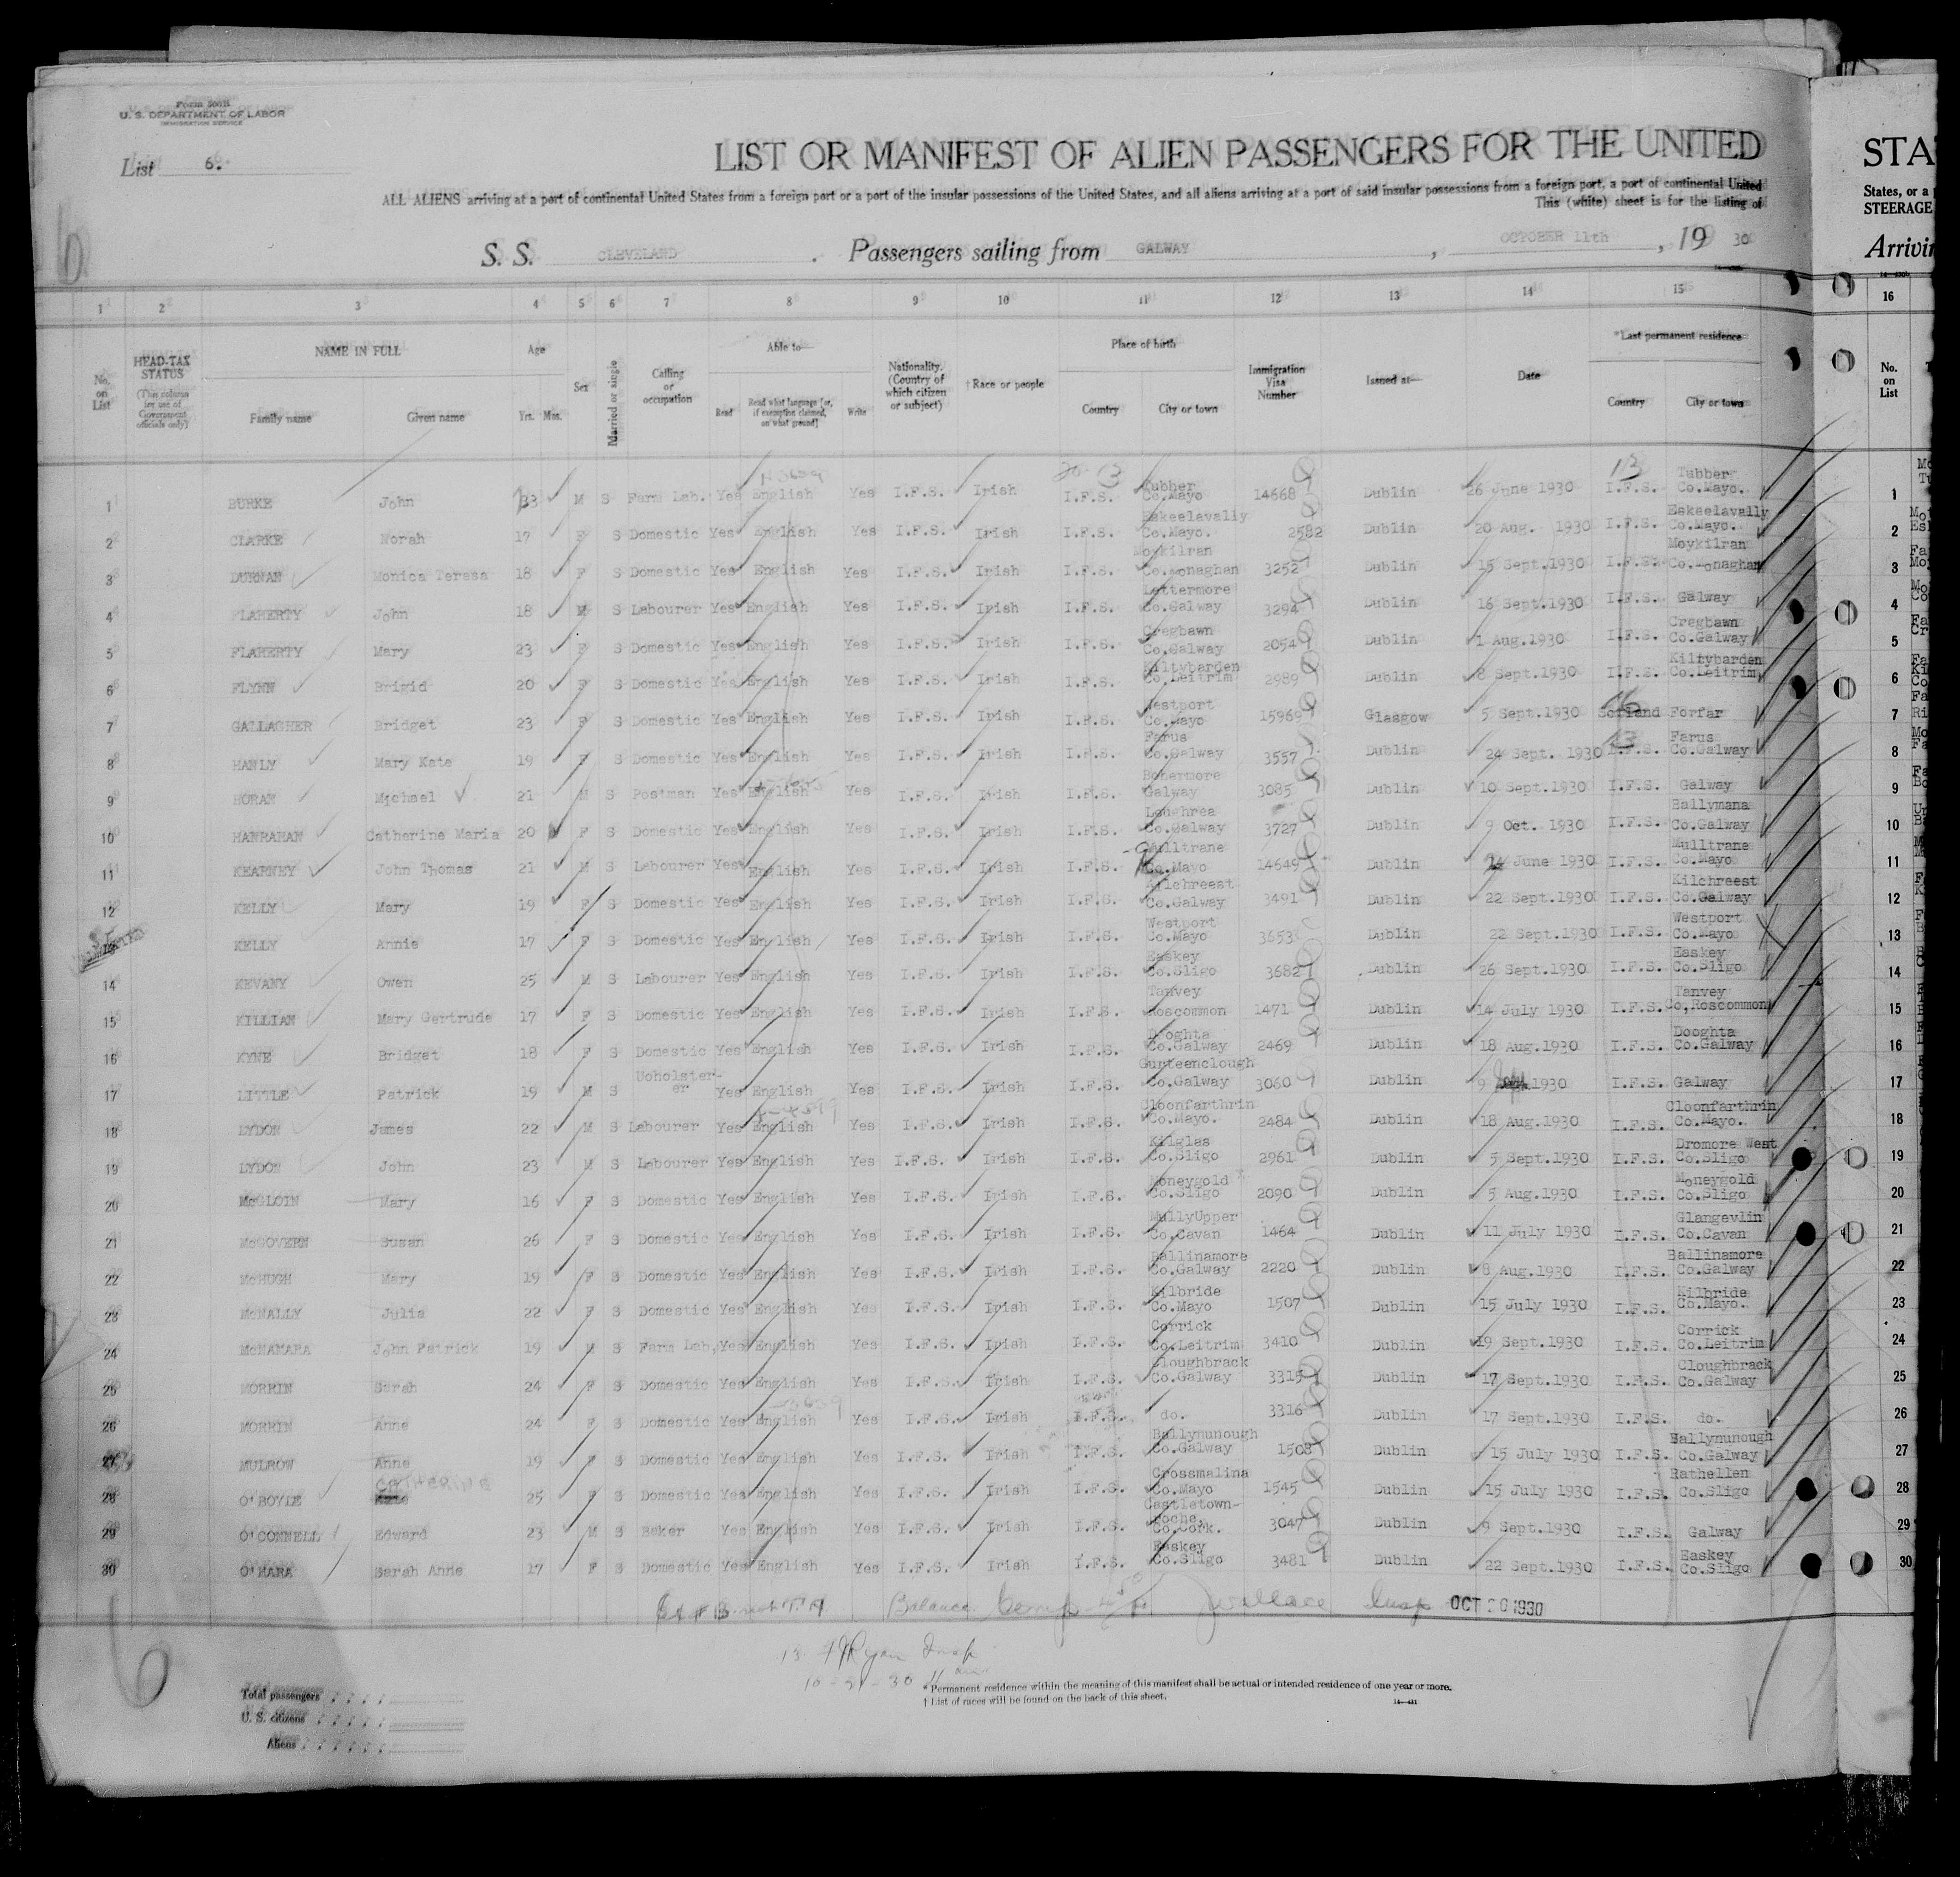 Form 500B
U. S. DEPARTMENT OF LABOR
IMMIGRATION SERVICE
List 6.
LIST OR MANIFEST OF ALIEN PASSENGERS FOR THE UNITED
STA
ALL ALIENS arriving at a port of continental United States from a foreign port or a port of the insular possessions of the United States, and all aliens arriving at a port of said insular possessions from a foreign port, a port of continental United
States, or a
This (white) sheet is for the listing of
STEERAGE
S. S. CLEVELAND . Passengers sailing from GALWAY , OCTOBER 11th , 19 30
Arrivin
1 2 3 4 5 6 7 8 9 10 11 12 13 14 15 16
No. on List
HEAD-TAX STATUS (This column for use of Government officials only)
NAME IN FULL
Family name Given name
Age
Yrs. Mos.
Sex
Married or single
Calling or occupation
Able to—
Read Read what language [or, if exemption claimed, on what ground] Write
Nationality. (Country of which citizen or subject)
† Race or people
Place of birth
Country City or town
Immigration Visa Number
Issued at—
Date
*Last permanent residence
Country City or town
No. on List
1 BURKE John 33 M S Farm Lab. Yes English Yes I.F.S. Irish I.F.S. Tubber Co.Mayo 14668 Dublin 26 June 1930 I.F.S. Tubber Co.Mayo. 1
2 CLARKE Norah 17 F S Domestic Yes English Yes I.F.S. Irish I.F.S. Eskeelavally Co.Mayo. 2582 Dublin 20 Aug. 1930 I.F.S. Eskeelavally Co.Mayo. 2
3 DURNAN Monica Teresa 18 F S Domestic Yes English Yes I.F.S. Irish I.F.S. Moykilran Co.Monaghan 3252 Dublin 15 Sept.1930 I.F.S. Moykilran Co.Monaghan 3
4 FLAHERTY John 18 M S Labourer Yes English Yes I.F.S. Irish I.F.S. Lettermore Co.Galway 3294 Dublin 16 Sept.1930 I.F.S. Galway 4
5 FLAHERTY Mary 23 F S Domestic Yes English Yes I.F.S. Irish I.F.S. Cregbawn Co.Galway 2054 Dublin 1 Aug.1930 I.F.S. Cregbawn Co.Galway 5
6 FLYNN Brigid 20 F S Domestic Yes English Yes I.F.S. Irish I.F.S. Kiltybarden Co.Leitrim 2989 Dublin 8 Sept.1930 I.F.S. Kiltybarden Co.Leitrim 6
7 GALLAGHER Bridget 23 F S Domestic Yes English Yes I.F.S. Irish I.F.S. Westport Co.Mayo 15969 Glasgow 5 Sept.1930 Scotland Forfar 7
8 HANLY Mary Kate 19 F S Domestic Yes English Yes I.F.S. Irish I.F.S. Farus Co.Galway 3557 Dublin 24 Sept. 1930 I.F.S. Farus Co.Galway 8
9 HORAN Michael 21 M S Postman Yes English Yes I.F.S. Irish I.F.S. Bohermore Galway 3085 Dublin 10 Sept.1930 I.F.S. Galway 9
10 HANRAHAN Catherine Maria 20 F S Domestic Yes English Yes I.F.S. Irish I.F.S. Loughrea Co.Galway 3727 Dublin 9 Oct. 1930 I.F.S. Ballymana Co.Galway 10
11 KEARNEY John Thomas 21 M S Labourer Yes English Yes I.F.S. Irish I.F.S. Mulltrane Co.Mayo 14649 Dublin 24 June 1930 I.F.S. Mulltrane Co.Mayo 11
12 KELLY Mary 19 F S Domestic Yes English Yes I.F.S. Irish I.F.S. Kilchreest Co.Galway 3491 Dublin 22 Sept.1930 I.F.S. Kilchreest Co.Galway 12
13 KELLY Annie 17 F S Domestic Yes English Yes I.F.S. Irish I.F.S. Westport Co.Mayo 3653 Dublin 22 Sept.1930 I.F.S. Westport Co.Mayo 13
14 KEVANY Owen 25 M S Labourer Yes English Yes I.F.S. Irish I.F.S. Easkey Co.Sligo 3682 Dublin 26 Sept.1930 I.F.S. Easkey Co.Sligo 14
15 KILLIAN Mary Gertrude 17 F S Domestic Yes English Yes I.F.S. Irish I.F.S. Tanvey Roscommon 1471 Dublin 14 July 1930 I.F.S. Tanvey Co,Roscommon 15
16 KYNE Bridget 18 F S Domestic Yes English Yes I.F.S. Irish I.F.S. Dooghta Co.Galway 2469 Dublin 18 Aug.1930 I.F.S. Dooghta Co.Galway 16
17 LITTLE Patrick 19 M S Upholster-er Yes English Yes I.F.S. Irish I.F.S. Gurteenclough Co.Galway 3060 Dublin 9 Sept.1930 I.F.S. Galway 17
18 LYDON James 22 M S Labourer Yes English Yes I.F.S. Irish I.F.S. Cloonfarthrin Co.Mayo. 2484 Dublin 18 Aug.1930 I.F.S. Cloonfarthrin Co.Mayo. 18
19 LYDON John 23 M S Labourer Yes English Yes I.F.S. Irish I.F.S. Kilglas Co.Sligo 2961 Dublin 5 Sept.1930 I.F.S. Dromore West Co.Sligo 19
20 McGLOIN Mary 16 F S Domestic Yes English Yes I.F.S. Irish I.F.S. Moneygold Co.Sligo 2090 Dublin 5 Aug.1930 I.F.S. Moneygold Co.Sligo 20
21 McGOVERN Susan 26 F S Domestic Yes English Yes I.F.S. Irish I.F.S. MullyUpper Co.Cavan 1464 Dublin 11 July 1930 I.F.S. Glangevlin Co.Cavan 21
22 McHUGH Mary 19 F S Domestic Yes English Yes I.F.S. Irish I.F.S. Ballinamore Co.Galway 2220 Dublin 8 Aug.1930 I.F.S. Ballinamore Co.Galway 22
23 McNALLY Julia 22 F S Domestic Yes English Yes I.F.S. Irish I.F.S. Kilbride Co.Mayo 1507 Dublin 15 July 1930 I.F.S. Kilbride Co.Mayo. 23
24 McNAMARA John Patrick 19 M S Farm Lab, Yes English Yes I.F.S. Irish I.F.S. Corrick Co.Leitrim 3410 Dublin 19 Sept.1930 I.F.S. Corrick Co.Leitrim 24
25 MORRIN Sarah 24 F S Domestic Yes English Yes I.F.S. Irish I.F.S. Cloughbrack Co.Galway 3315 Dublin 17 Sept.1930 I.F.S. Cloughbrack Co.Galway 25
26 MORRIN Anne 24 F S Domestic Yes English Yes I.F.S. Irish I.F.S. do. 3316 Dublin 17 Sept.1930 I.F.S. do. 26
27 MULROW Anne 19 F S Domestic Yes English Yes I.F.S. Irish I.F.S. Ballynunough Co.Galway 1508 Dublin 15 July 1930 I.F.S. Ballynunough Co.Galway 27
28 O'BOYLE CATHERINE 25 F S Domestic Yes English Yes I.F.S. Irish I.F.S. Crossmalina Co.Mayo 1545 Dublin 15 July 1930 I.F.S. Rathellen Co.Sligo 28
29 O'CONNELL Edward 23 M S Baker Yes English Yes I.F.S. Irish I.F.S. Castletown-Roche, Co.Cork. 3047 Dublin 9 Sept.1930 I.F.S. Galway 29
30 O'HARA Sarah Anne 17 F S Domestic Yes English Yes I.F.S. Irish I.F.S. Easkey Co.Sligo 3481 Dublin 22 Sept.1930 I.F.S. Easkey Co.Sligo 30
Balance Wallace Insp OCT 20 1930
13 Ryan Insp
6
* Permanent residence within the meaning of this manifest shall be actual or intended residence of one year or more.
† List of races will be found on the back of this sheet.
Total passengers
U. S. citizens
Aliens